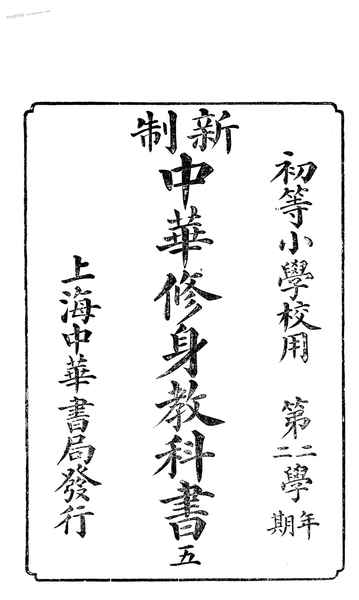 初等小學校用 第二二學年期
新制
中華修身教科書 五
上海中華書局發行